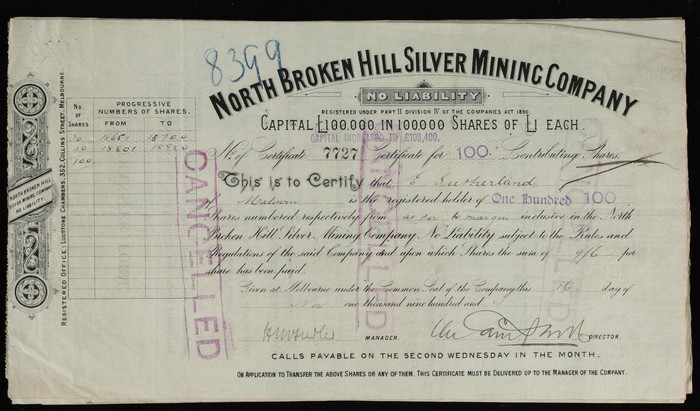 8399
NORTH BROKEN HILL SILVER MINING COMPANY
NO LIABILITY
REGISTERED UNDER PART II DIVISION IV OF THE COMPANIES ACT 1890
CAPITAL £100.000 IN 100.000 SHARES OF £1 EACH.
CAPITAL INCREASED TO £109,400.
No. of Certificate 7727 Certificate for 100. Contributing Shares.
This is to Certify that E Sutherland
of Malvern is the registered holder of One Hundred 100
Shares numbered respectively from as per in margin inclusive in the North
Broken Hill Silver Mining Company No Liability subject to the Rules and
Regulations of the said Company and upon which Shares the sum of per
share has been paid.
Given at Melbourne under the Common Seal of the Company this 16 day of
Nov one thousand nine hundred and
MANAGER.
DIRECTOR.
CALLS PAYABLE ON THE SECOND WEDNESDAY IN THE MONTH.
ON APPLICATION TO TRANSFER THE ABOVE SHARES OR ANY OF THEM, THIS CERTIFICATE MUST BE DELIVERED UP TO THE MANAGER OF THE COMPANY.
No OF SHARES.
PROGRESSIVE NUMBERS OF SHARES.
FROM TO
50 18700
50 18801 18850
100
NORTH BROKEN HILL
SILVER MINING COMPANY
NO LIABILITY.
REGISTERED OFFICE: LUDSTONE CHAMBERS, 352, COLLINS STREET, MELBOURNE.
CANCELLED
CANCELLED
CANCELLED